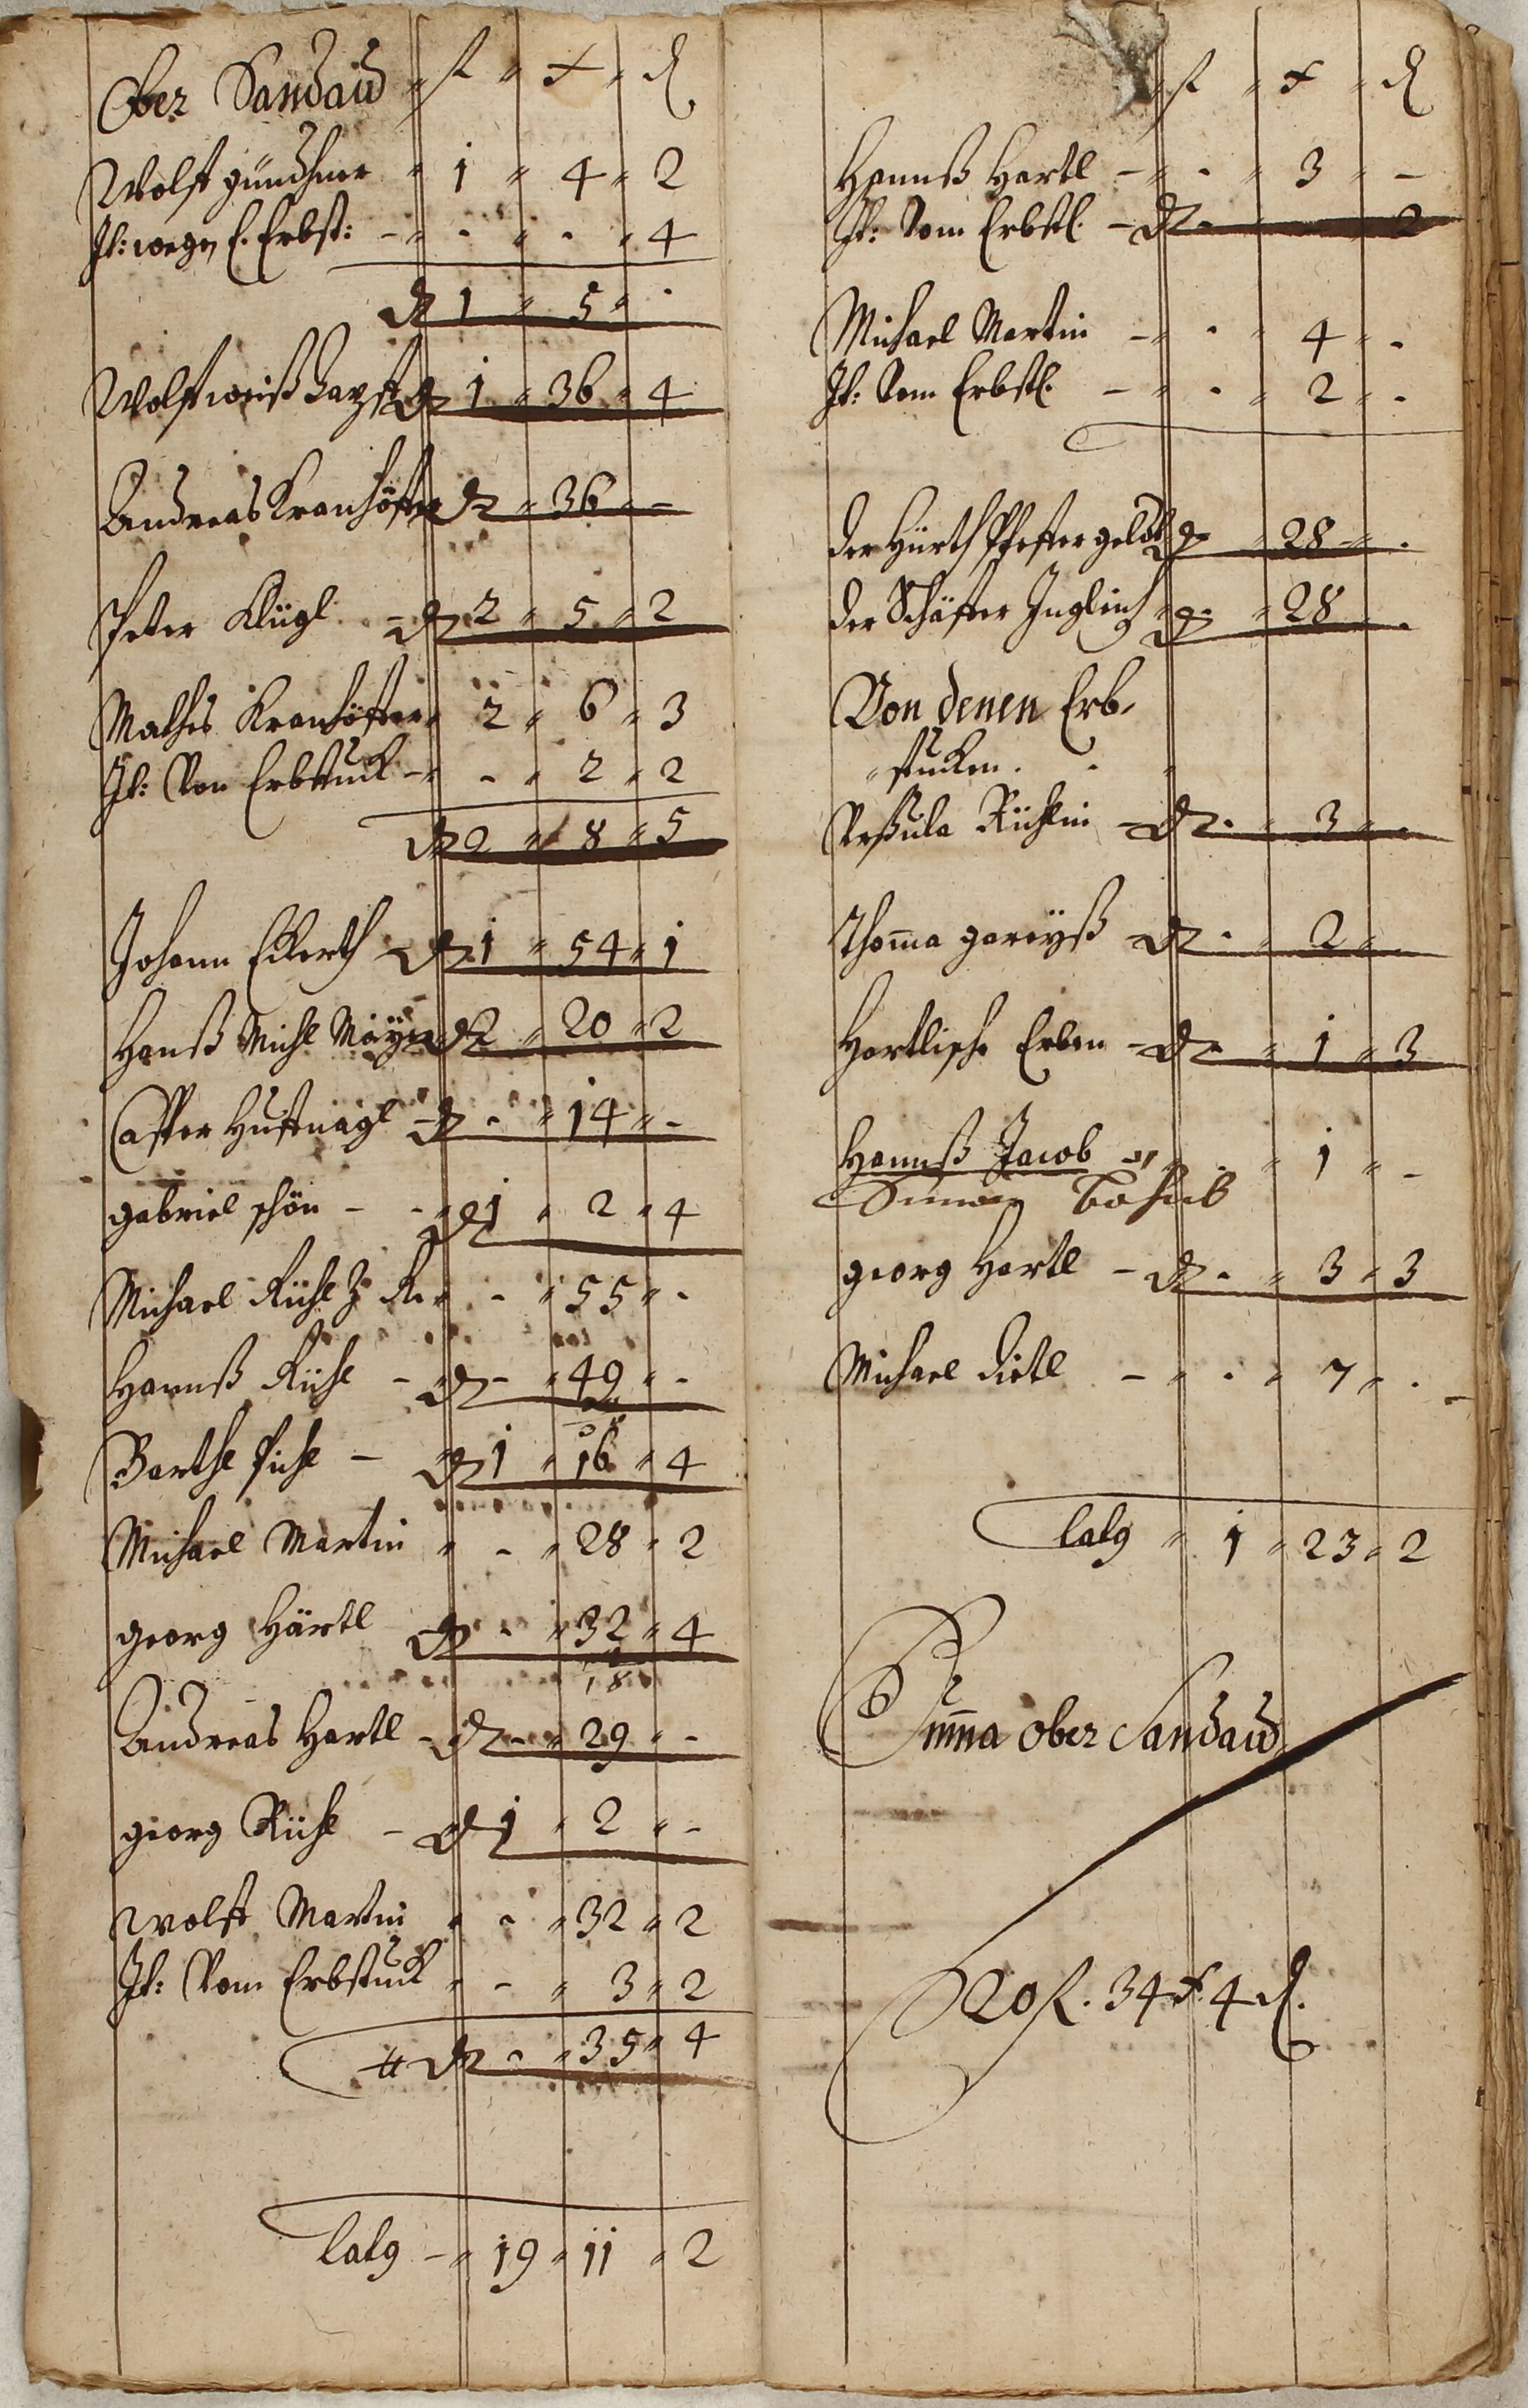 Ober Sandau fl x d
Wolff gündhner 1 4 2
It: wegen E. Erbst: - - - 4
1 5 -
Wolff weiß 1 36 4
Andreas Kranhöffer 36 -
Peter Klügl 2 5 2
Mathes Kranhöffer 2 6 3
It: Von Erbstuck - - 2 2
2 8 5
Johann Ekerth 1 54 1
Hanß Michl Mäyer 2 20 2
Casper Huffnagl - 14 -
gabriel schön - 1 2 4
Michael Rühl Z R. - 55 -
Hannß Rühl - - 49 -
Barthl Pichl - 1 16 4
Michael Martin - 28 2
georg Härtl - 32 4
18
Andreas Hartl - - 29 -
georg Rühl - 1 2 -
Wolff Martin - 32 2
It: Vom Erbstuck - 3 2
- 35 4
latg - 19 11 2
fl x d
Hannß Hartl - - 3 -
It: Vom Erbstl. - - 2
Michael Martin - - 4 -
It: Vom Erbstl. - - 2 -
der Hürth Pfeffergeldt 28 -
der Schäffer Ingleich 28 -
Von denen Erb-
stucken.
Urßula Rühlin - - 3 -
Thoma gareyß - - 2 -
Hartlische Erben - - 1 3
Hannß Jacob - - 1 -
Simon
georg Hartl - - 3 3
Michael Dietl - - 7 -
latg 1 23 2
Summa Ober Sandau
20 fl. 34 x. 4 d.